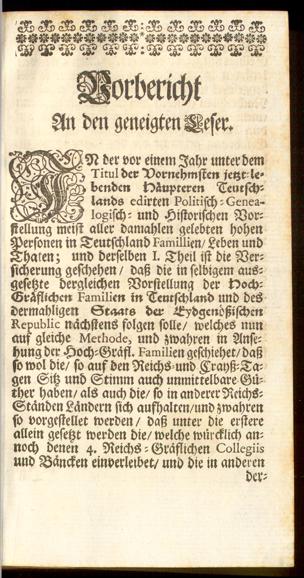 Vorbericht
An den geneigten Leser.
IN der vor einem Jahr unter dem
Titul der Vornehmsten jetzt-le-
benden Häupteren Teutsch-
lands edirten Politisch- Genea-
logisch- und Historischen Vor-
stellung meist aller damahlen gelebten hohen
Personen in Teutschland Famillien/ Leben und
Thaten; und derselben I. Theil ist die Ver-
sicherung geschehen/ daß die in selbigem aus-
gesetzte dergleichen Vorstellung der Hoch-
Gräflichen Familien in Teutschland und des
dermahligen Staats der Eydgenößischen
Republic nächstens folgen solle/ welches nun
auf gleiche Methode, und zwahren in Anse-
hung der Hoch-Gräfl. Familien geschiehet/ daß
so wol die/ so auf den Reichs- und Crayß-Ta-
gen Sitz und Stimm auch unmittelbare Gü-
ther haben/ als auch die/ so in anderer Reichs-
Ständen Ländern sich aufhalten/ und zwahren
so vorgestellet werden/ daß unter die erstere
allein gesetzt werden die/ welche würcklich an-
noch denen 4. Reichs-Gräflichen Collegiis
und Bäncken einverleibet/ und die in anderen
der-